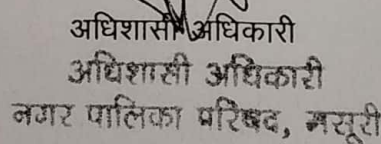 अधिशासी अधिकारी
अधिशासी अधिकारी
नगर पालिका परिषद, मसूरी